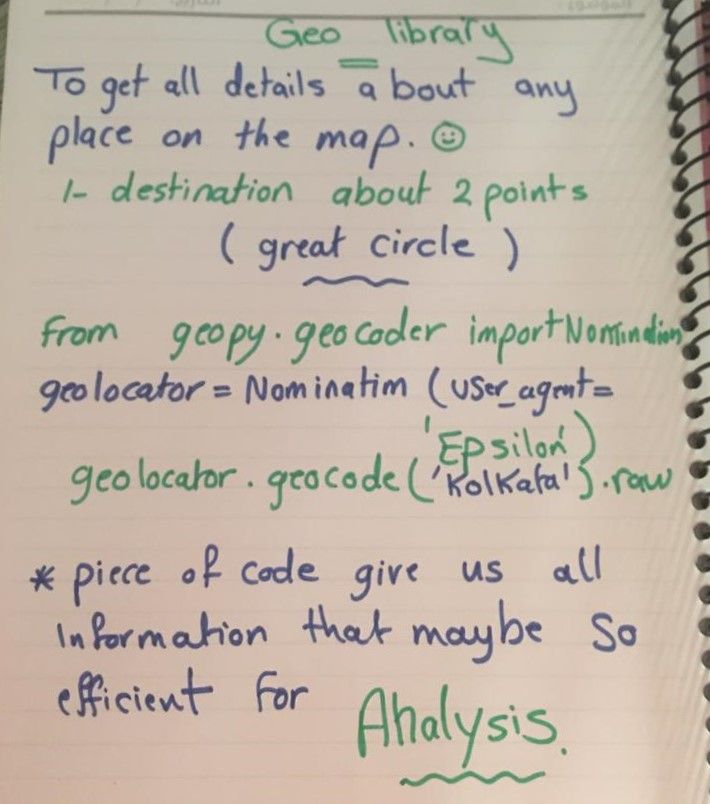 Geo library
To get all details about any
place on the map. ☺
1- destination about 2 points
( great circle )
from geopy.geocoder import
geolocator = Nominatim (user_agent=
'Epsilon')
geolocator.geocode('Kolkata').raw
* piece of code give us all
Information that maybe so
efficient for Analysis.